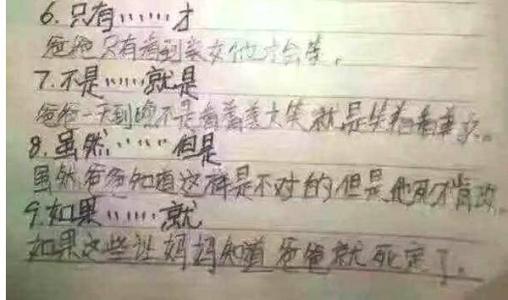 6.只有……才
爸爸只有看到美女他才会笑。
7.不是……就是
爸爸一天到晚不是看着美女笑就是笑着看美女。
8.虽然……但是
虽然爸爸知道这样是不对的但是他死不肯改
9.如果……就
如果这些让妈妈知道爸爸就死定了。